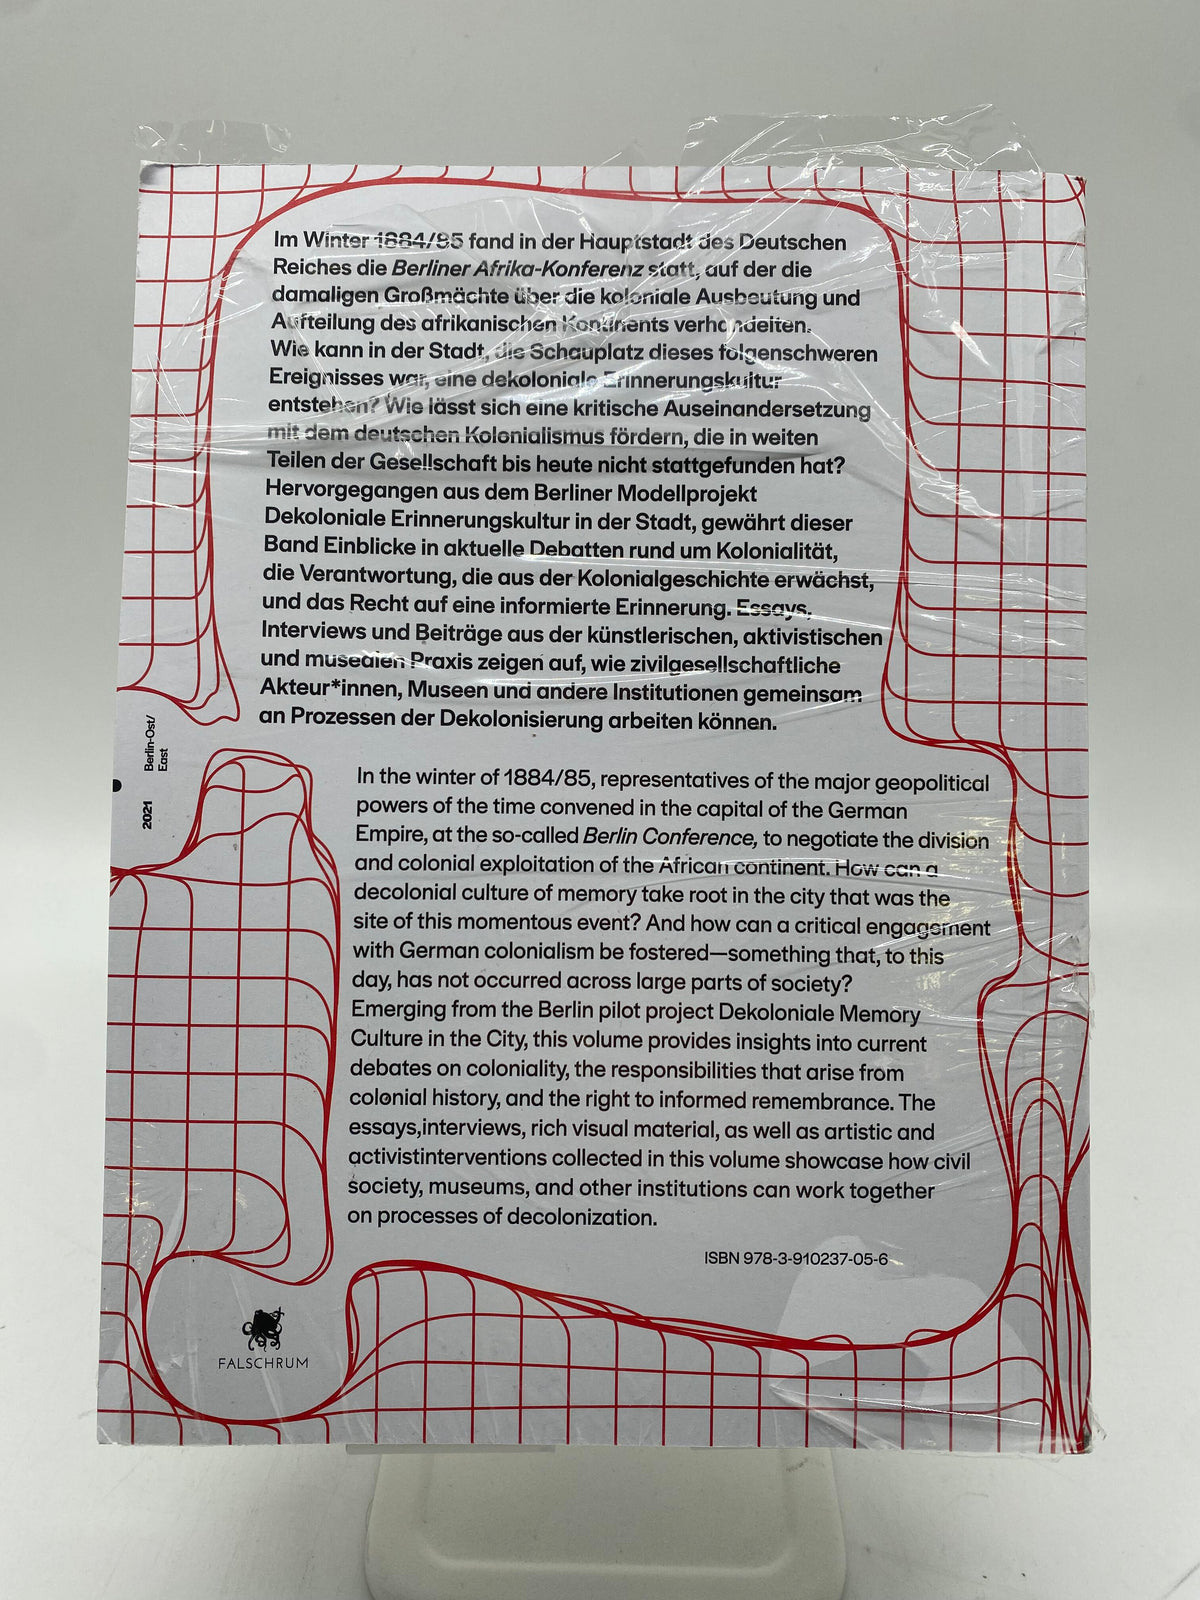 Im Winter 1884/85 fand in der Hauptstadt des Deutschen
Reiches die Berliner Afrika-Konferenz statt, auf der die
damaligen Großmächte über die koloniale Ausbeutung und
Aufteilung des afrikanischen Kontinents verhandelten.
Wie kann in der Stadt, die Schauplatz dieses folgenschweren
Ereignisses war, eine dekoloniale Erinnerungskultur
entstehen? Wie lässt sich eine kritische Auseinandersetzung
mit dem deutschen Kolonialismus fördern, die in weiten
Teilen der Gesellschaft bis heute nicht stattgefunden hat?
Hervorgegangen aus dem Berliner Modellprojekt
Dekoloniale Erinnerungskultur in der Stadt, gewährt dieser
Band Einblicke in aktuelle Debatten rund um Kolonialität,
die Verantwortung, die aus der Kolonialgeschichte erwächst,
und das Recht auf eine informierte Erinnerung. Essays,
Interviews und Beiträge aus der künstlerischen, aktivistischen
und musealen Praxis zeigen auf, wie zivilgesellschaftliche
Akteur*innen, Museen und andere Institutionen gemeinsam
an Prozessen der Dekolonisierung arbeiten können.
Berlin-Ost/
East
2021
In the winter of 1884/85, representatives of the major geopolitical
powers of the time convened in the capital of the German
Empire, at the so-called Berlin Conference, to negotiate the division
and colonial exploitation of the African continent. How can a
decolonial culture of memory take root in the city that was the
site of this momentous event? And how can a critical engagement
with German colonialism be fostered—something that, to this
day, has not occurred across large parts of society?
Emerging from the Berlin pilot project Dekoloniale Memory
Culture in the City, this volume provides insights into current
debates on coloniality, the responsibilities that arise from
colonial history, and the right to informed remembrance. The
essays,interviews, rich visual material, as well as artistic and
activistinterventions collected in this volume showcase how civil
society, museums, and other institutions can work together
on processes of decolonization.
ISBN 978-3-910237-05-6
FALSCHRUM